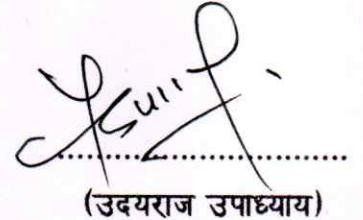 (उदयराज उपाध्याय)